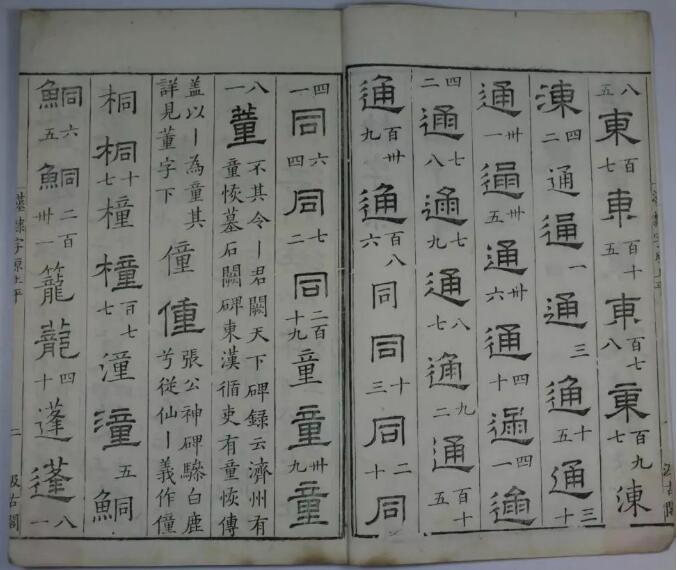 八五東百七東百十五東百七八東百九七涷
涷四二通通一通三通十五通三十
通卅一通卅五通卅六通四十通四一通
四二通七八通七九通八七通九二通百十五
通百卅九通百八六同同十三同二十同
四一同六四同七二同二百十九童童卅九童
八一董不其令丨君闕天下碑錄云濟州有
童恢墓石闕碑東漢循吏有童恢傳
蓋以丨為童其
詳見董字下僮僮張公神碑驂白鹿
兮從仙丨義作僮
桐桐十七橦橦百七七潼潼五鮦
鮦六五鮦二百卅一籠籠四十蓬蓬八一
漢隸字原上平 二 汲古閣